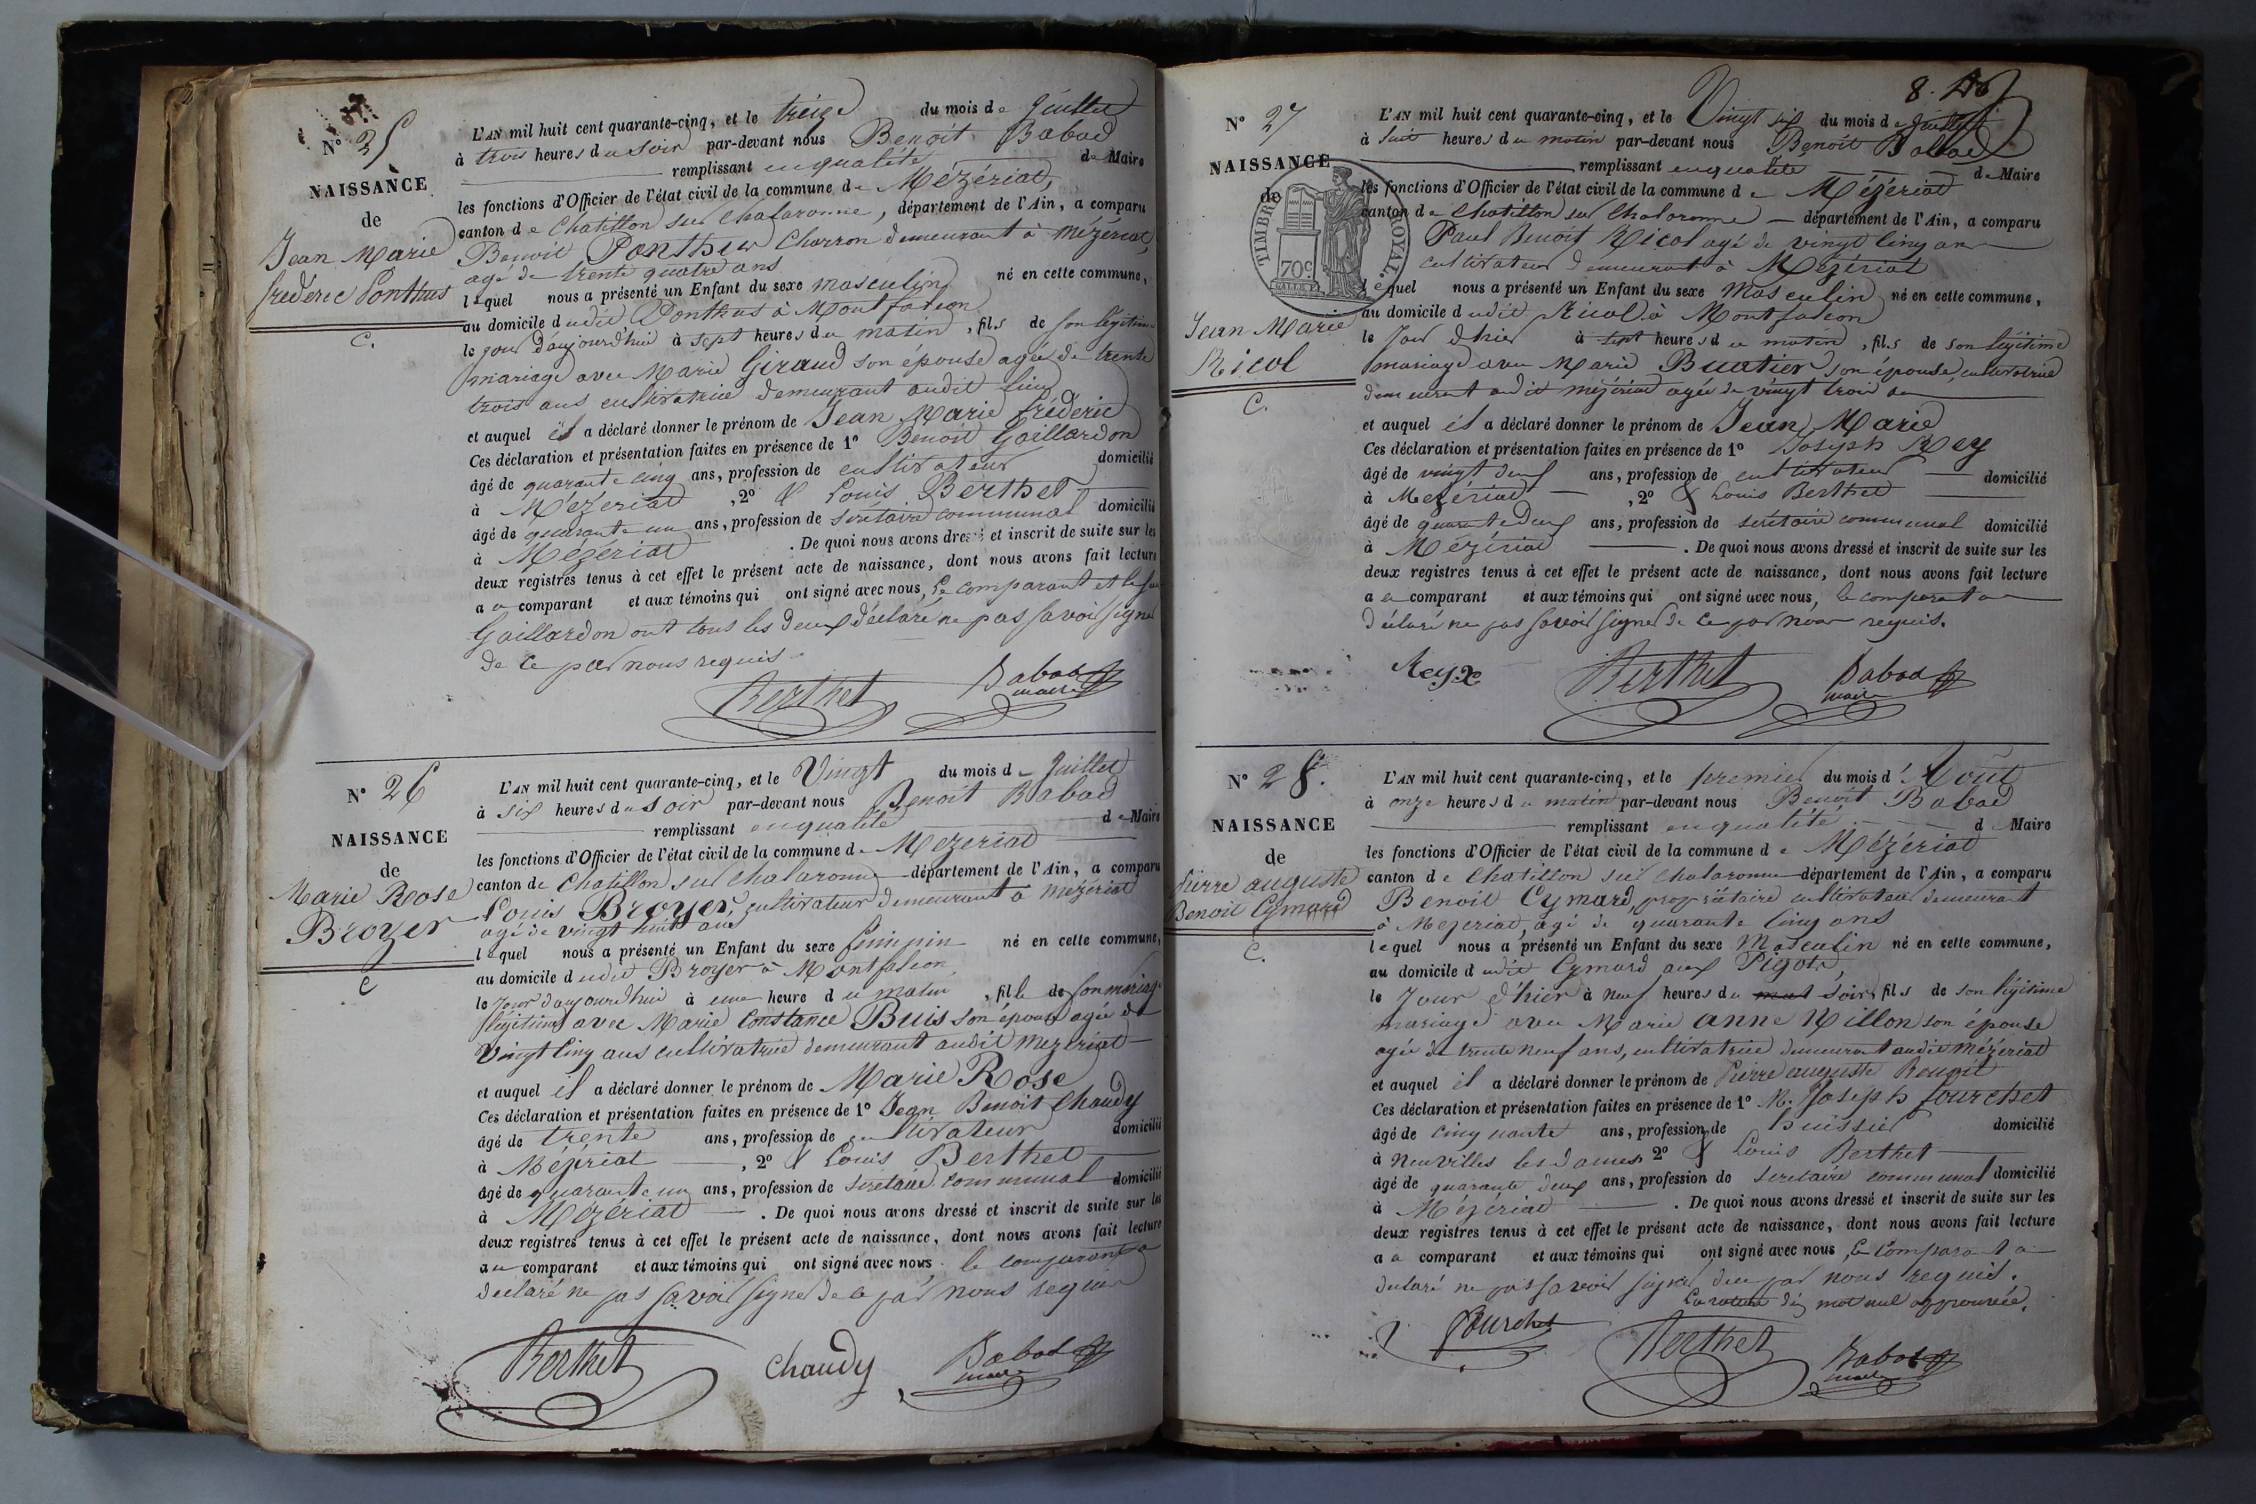 N° 25
NAISSANCE
de
Jean Marie
frédéric Ponthus
C.
L'AN mil huit cent quarante-cinq, et le treize du mois de Juillet
à trois heures du soir par-devant nous Benoit Babad
remplissant en qualité de Maire
les fonctions d'Officier de l'état civil de la commune de Mézériat,
canton de Chatillon sur Chalaronne, département de l'Ain, a comparu
Benoit Ponthus Charron demeurant à Mézériat,
agé de trente quatre ans
lequel nous a présenté un Enfant du sexe masculin né en cette commune,
au domicile dudit Ponthus à Montfalcon
le jour d'aujourd'hui à sept heures du matin, fils de son légitime
mariage avec Marie Giraud son épouse agée de trente
trois ans cultivatrice demeurant audit lieu
et auquel il a déclaré donner le prénom de Jean Marie frédéric
Ces déclaration et présentation faites en présence de 1° Benoit Gaillardon
âgé de quarante cinq ans, profession de cultivateur domicilié
à Mézériat, 2° & Louis Berthet
âgé de quarante un ans, profession de secrétaire communal domicilié
à Mézériat. De quoi nous avons dressé et inscrit de suite sur les
deux registres tenus à cet effet le présent acte de naissance, dont nous avons fait lecture
au comparant et aux témoins qui ont signé avec nous, le comparant et le
Gaillardon ont tous les deux déclaré ne pas savoir signer
de ce par nous requis
Berthet Babad
maire
N° 26
NAISSANCE
de
Marie Rose
Broyer
C
L'AN mil huit cent quarante-cinq, et le Vingt du mois de Juillet
à six heures du soir par-devant nous Benoit Babad
remplissant en qualité de Maire
les fonctions d'Officier de l'état civil de la commune de Mezeriat
canton de Chatillon sur Chalaronne département de l'Ain, a comparu
Louis Broyer, cultivateur demeurant à Mézériat
agé de vingt huit ans
lequel nous a présenté un Enfant du sexe feminin né en cette commune,
au domicile dudit Broyer à Montfalcon
le jour d'aujourd'hui à une heure du matin, fille de son mariage
légitime avec Marie Constance Buis son épouse agée de
Vingt cinq ans cultivatrice demeurant audit Mezeriat
et auquel il a déclaré donner le prénom de Marie Rose
Ces déclaration et présentation faites en présence de 1° Jean Benoit Chaudy
âgé de trente ans, profession de cultivateur domicilié
à Mézériat, 2° & Louis Berthet
âgé de quarante un ans, profession de secretaire communal domicilié
à Mézériat. De quoi nous avons dressé et inscrit de suite sur les
deux registres tenus à cet effet le présent acte de naissance, dont nous avons fait lecture
au comparant et aux témoins qui ont signé avec nous le comparant a
declaré ne pas savoir signer de ce par nous requis
Berthet Chaudy Babad
maire
8.
N° 27
NAISSANCE
de
TIMBRE ROYAL.
70c
Jean Marie
Ricol
C.
L'AN mil huit cent quarante-cinq, et le Vingt six du mois de Juillet
à huit heures du matin par-devant nous Benoit Babad
remplissant en qualité de Maire
les fonctions d'Officier de l'état civil de la commune de Mézériat
canton de Chatillon sur Chalaronne département de l'Ain, a comparu
Paul Benoit Ricol agé de vingt cinq ans
cultivateur demeurant à Mézériat
lequel nous a présenté un Enfant du sexe Masculin né en cette commune,
au domicile dudit Ricol à Montfalcon
le Jour d'hier à sept heures du matin, fils de son légitime
mariage avec Marie Buatier son épouse, cultivatrice
demeurant audit mézériat agée de vingt trois ans
et auquel il a déclaré donner le prénom de Jean Marie
Ces déclaration et présentation faites en présence de 1° Joseph Rey
âgé de vingt deux ans, profession de cultivateur domicilié
à Mezériat, 2° & Louis Berthet
âgé de quarante deux ans, profession de secrétaire communal domicilié
à Mézériat. De quoi nous avons dressé et inscrit de suite sur les
deux registres tenus à cet effet le présent acte de naissance, dont nous avons fait lecture
au comparant et aux témoins qui ont signé avec nous, le comparant a
déclaré ne pas savoir signer de ce par nous requis.
Rey Berthet Babad
maire
N° 28.
NAISSANCE
de
Pierre auguste
Benoit Cymard
C.
L'AN mil huit cent quarante-cinq, et le premier du mois d'Août
à onze heures du matin par-devant nous Benoit Babad
remplissant en qualité de Maire
les fonctions d'Officier de l'état civil de la commune de Mézériat
canton de Chatillon sur Chalaronne département de l'Ain, a comparu
Benoit Cymard, propriétaire cultivateur demeurant
à Mezeriat, agé de quarante cinq ans
lequel nous a présenté un Enfant du sexe Masculin né en cette commune,
au domicile dudit Cymard aux Pigots,
le Jour d'hier à neuf heures du soir fils de son légitime
mariage avec Marie anne Nillon son épouse
agée de trente neuf ans, cultivatrice demeurant audit Mézériat
et auquel il a déclaré donner le prénom de Pierre auguste Benoit
Ces déclaration et présentation faites en présence de 1° M. Joseph fourchet
âgé de cinquante ans, profession de huissier domicilié
à Neuvilles les Dames 2° & Louis Berthet
âgé de quarante deux ans, profession de secretaire communal domicilié
à Mézériat. De quoi nous avons dressé et inscrit de suite sur les
deux registres tenus à cet effet le présent acte de naissance, dont nous avons fait lecture
au comparant et aux témoins qui ont signé avec nous, le comparant a
declaré ne pas savoir signer de ce par nous requis.
La rature du mot nul approuvée.
fourchet Berthet Babad
maire